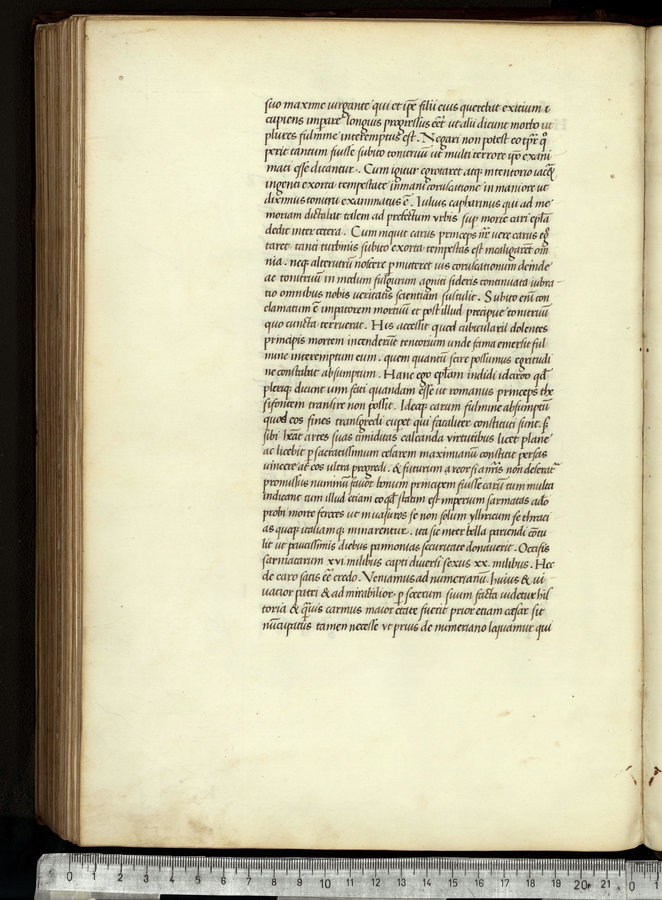 suo maxime urgente qui et ip̄e filii eius querebat exitium ⁊
cupiens imperē longius progressus eēt ut alii dicunt morbo ut
plures fulmine interemptus est. Negari non potest eo tp̄r qͦ
periit tantum fuisse subito tonitruū ut multi terrore ip̄o exani
mati esse dicantur. Cum igitur egrotaret atq; in tentorio iacēt
ingenti exorta tempestate inmani coruscatione inmaniore ut
diximus tonitru exanimatus ē. Iulius capharnius qui ad me
moriam dictabat talem ad prefectum urbis suꝑ morte cari epl̄a
dedit inter cetera. Cum inquit carus princeps nr̄ vere carus eg̊
taret tanti turbinis subito exorta tempestas est ut caligarēt om̄
nia. neq; alterutrū noscere ꝑmuteret uis coruscationum deinde
ac tonitruū in modum fulgurum igniti sideris continuata iubra
tio omnibus nobis veritatis scientiam sustulit. Subito em̄ con
clamatum ē impatorem mortuū et post illud precipue tonitruū
quod cuncta terruerat. His accessit quod cubicularii dolentes
principis mortem incenderūt tentorium unde fama emersit ful
mine interemptum eum. quem quantū scire possumus egritudi
ne constabat absumptum. Hanc ego epl̄am indidi idcirco qd̄
pleriq; dicunt uim fati quandam esse ut romanus princeps the
sifontem transire non possit. Ideoq; carum fulmine absumptū
quod eos fines transgredi cuperet qui fataliter constituti sunt. s;
sibi hēat artes suas timiditas calcanda virtutibus licet plane
ac licebit ꝑ sacratissimum cesarem maximianū constitit persas
vincere at eos ultra progredi. & futurum a reor si a nr̄is non deserat᷑
promissus numinū fauor bonum principem fuisse carū tum multa
indicant tum illud etiam eo qd̄ statim est imperium sarmatas adeo
probi morte feroces ut inuasuros se non solum yllricum se thraci
as quoq; italiamq; minarentur. ita sic inter bella pariendi cōtu
lit ut paucissimis diebus pannonias securitate donauerit. Occisis
sarmatarum xvi milibus capti diuersi sexus xx. milibus. Hec
de caro satis eē credo. Veniamus ad numerianū. huius & ui
uacior patri & admirabilior. ꝑ socerum suum facta uidetur his
toria & q̄uis carinus maior etate fuerit prior etiam cæsar sit
nūcupatus tamen necesse ut prius de numeriano loquamur qui